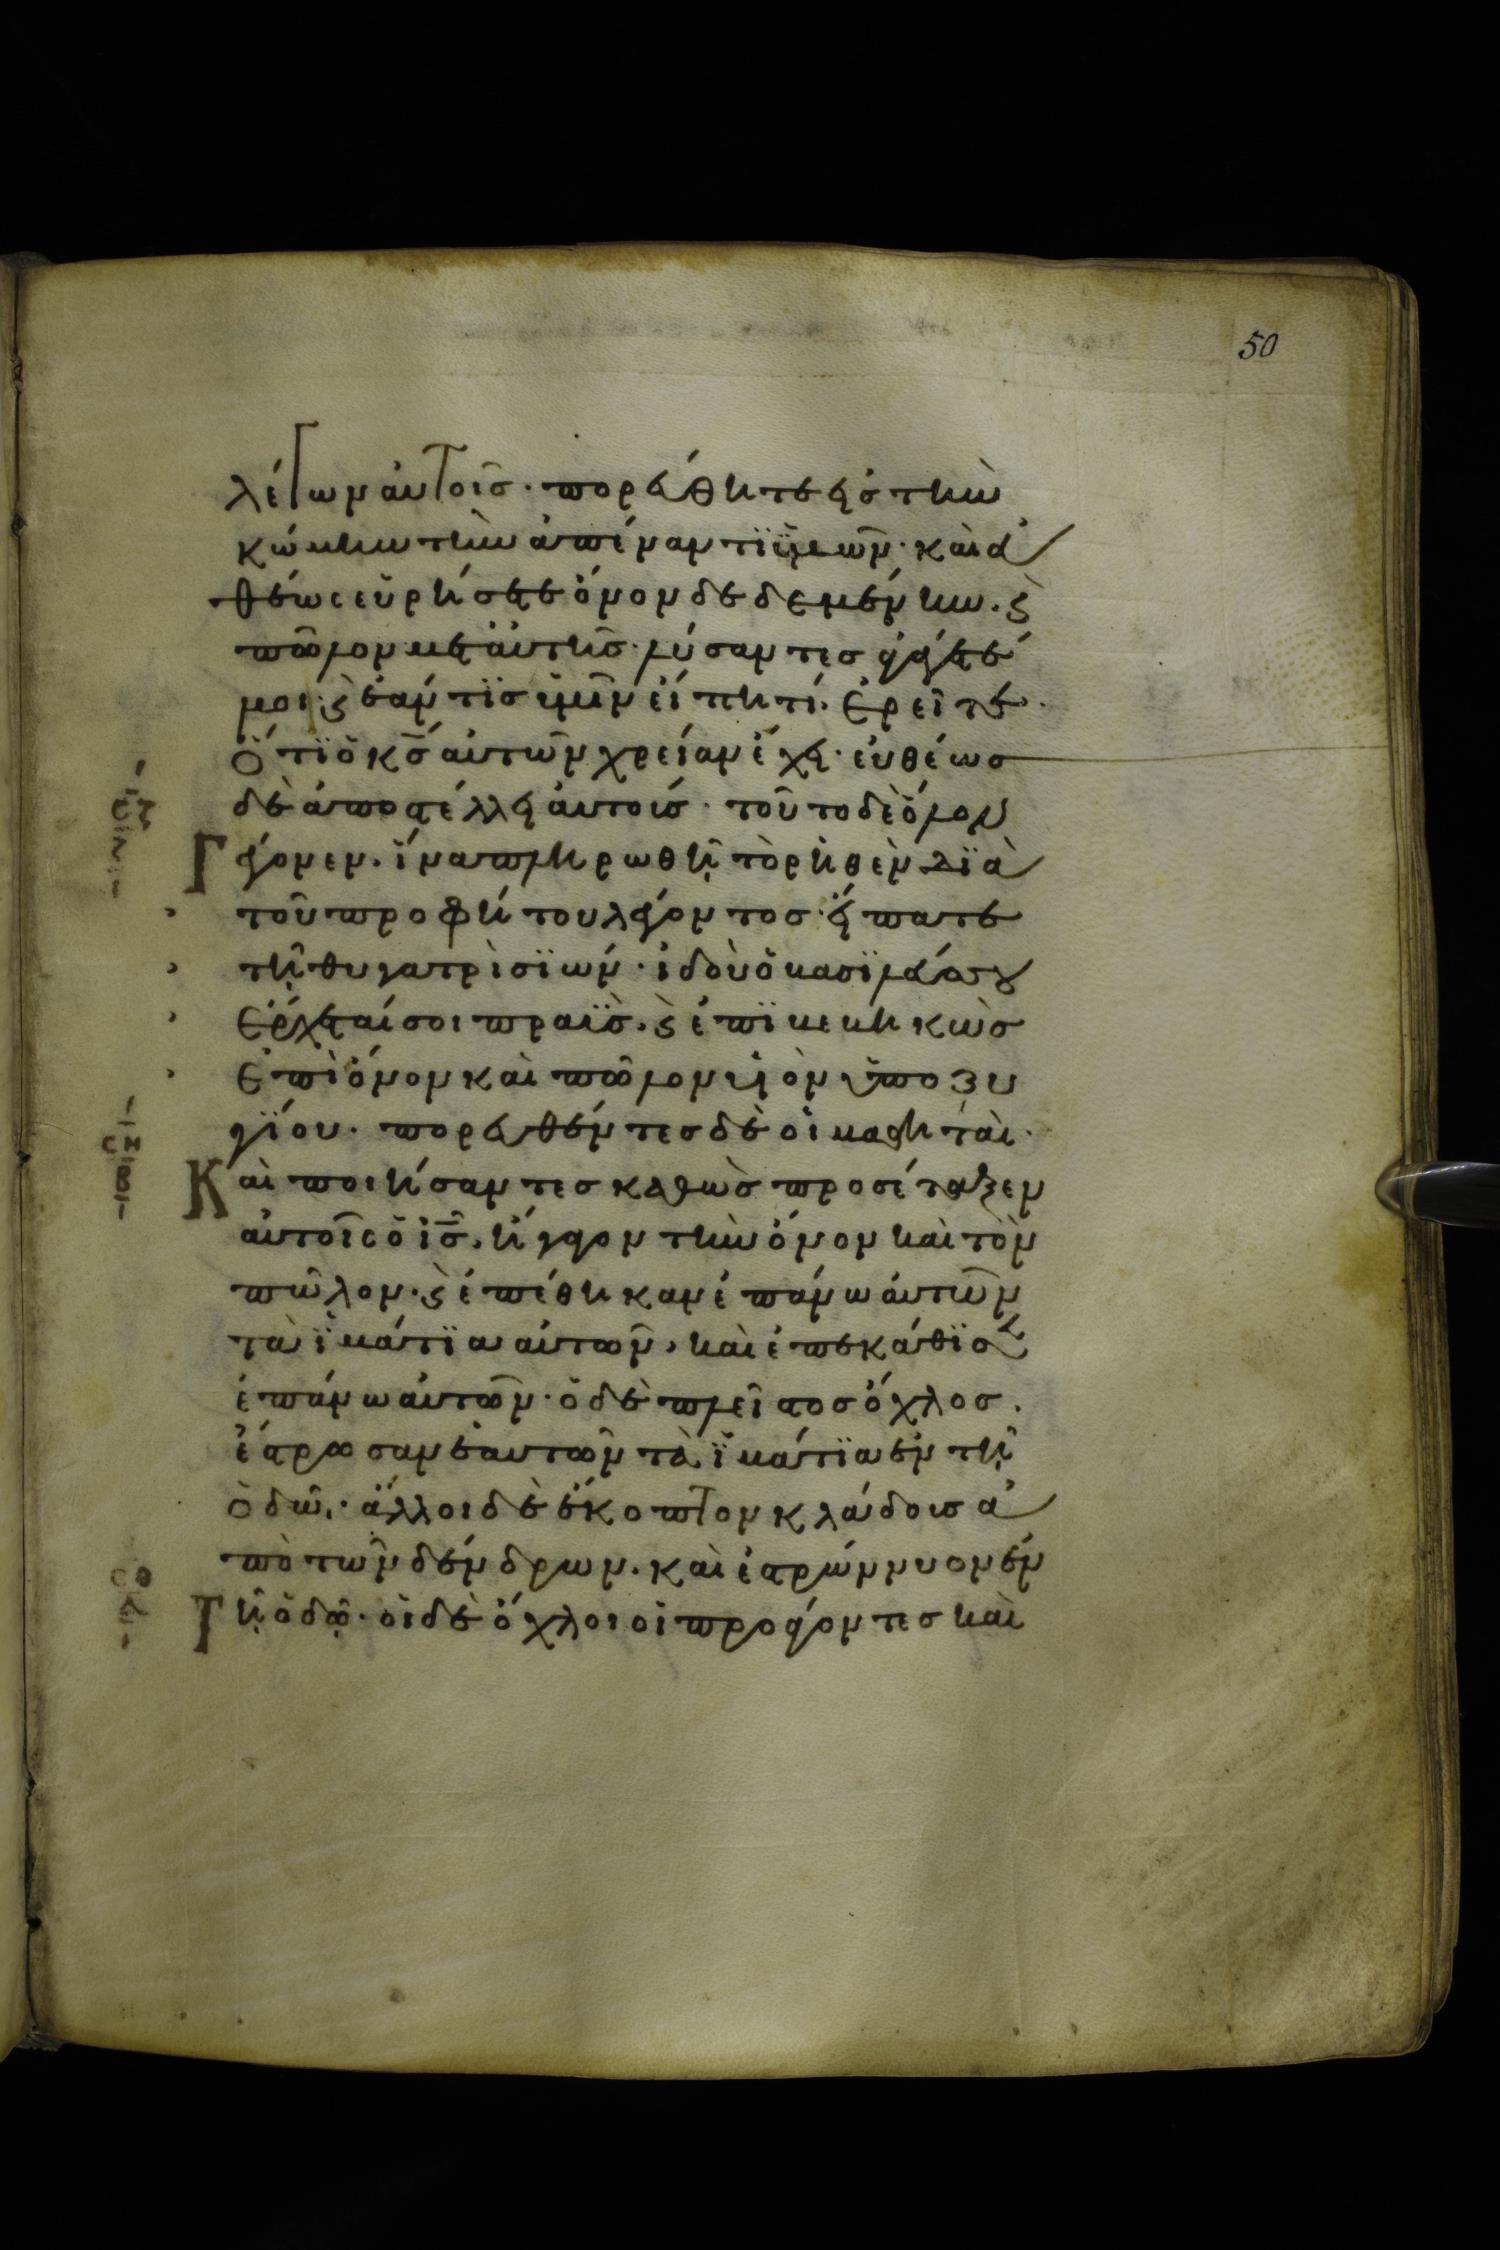 50
λέγων αὐτοῖσ· πορεύθητε εἰσ τὴν
κώμην τὴν ἀπέναντϊ ὑμῶν· καὶ εὐ
θέωσ εὑρήσετε ὄνον δεδεμένην. ϗ
πῶλον μετ' αὐτῆσ· λύσαντεσ ἀγάγετέ
μοι· ϗ ἐάν τϊσ ὑμῖν εἴπη τί. ἐρεῖτε·
ὅτϊ ὁ κσ αὐτῶν χρείαν ἔχει· εὐθέωσ
δὲ ἀποστέλλει αὐτούσ· τοῦτο δὲ ὅλον
γέγονεν. ἵνα πληρωθῆ τὸ ρηθὲν δϊὰ
τοῦ προφήτου λέγοντοσ· εἴπατε
τῆ θυγατρὶ σϊών· ἰδοὺ ὁ βασϊλεύσ σου
ἔρχεταί σοι πραϋσ. ϗ ἐπϊβεβηκὼσ
ἐπὶ ὄνον καὶ πῶλον υἱὸν ὑποζυ
γϊου· πορευθέντεσ δὲ οἱ μαθηταὶ·
καὶ ποιήσαντεσ καθὼσ προσέταξεν
αὐτοῖσ ὁ ισ, ἤγαγον τὴν ὄνον καὶ τὸν
πῶλον· ϗ ἐπέθηκαν ἐπάνω αὐτῶν
τὰ ϊμάτϊα αὐτῶν, καὶ ἐπεκάθϊσεν
ἐπάνω αὐτῶν· ὁ δὲ πλεῖστοσ ὄχλοσ.
ἔστρωσαν ἑαυτῶν τὰ ϊμάτϊα ἐν τῆ
ὁδῶ· ἄλλοι δὲ ἔκοπτον κλάδουσ ἀ
πὸ τῶν δένδρων. καὶ ἐστρώννυον ἐν
τῆ ὁδῶ· οἱ δὲ ὄχλοι οἱ προάγοντεσ καὶ